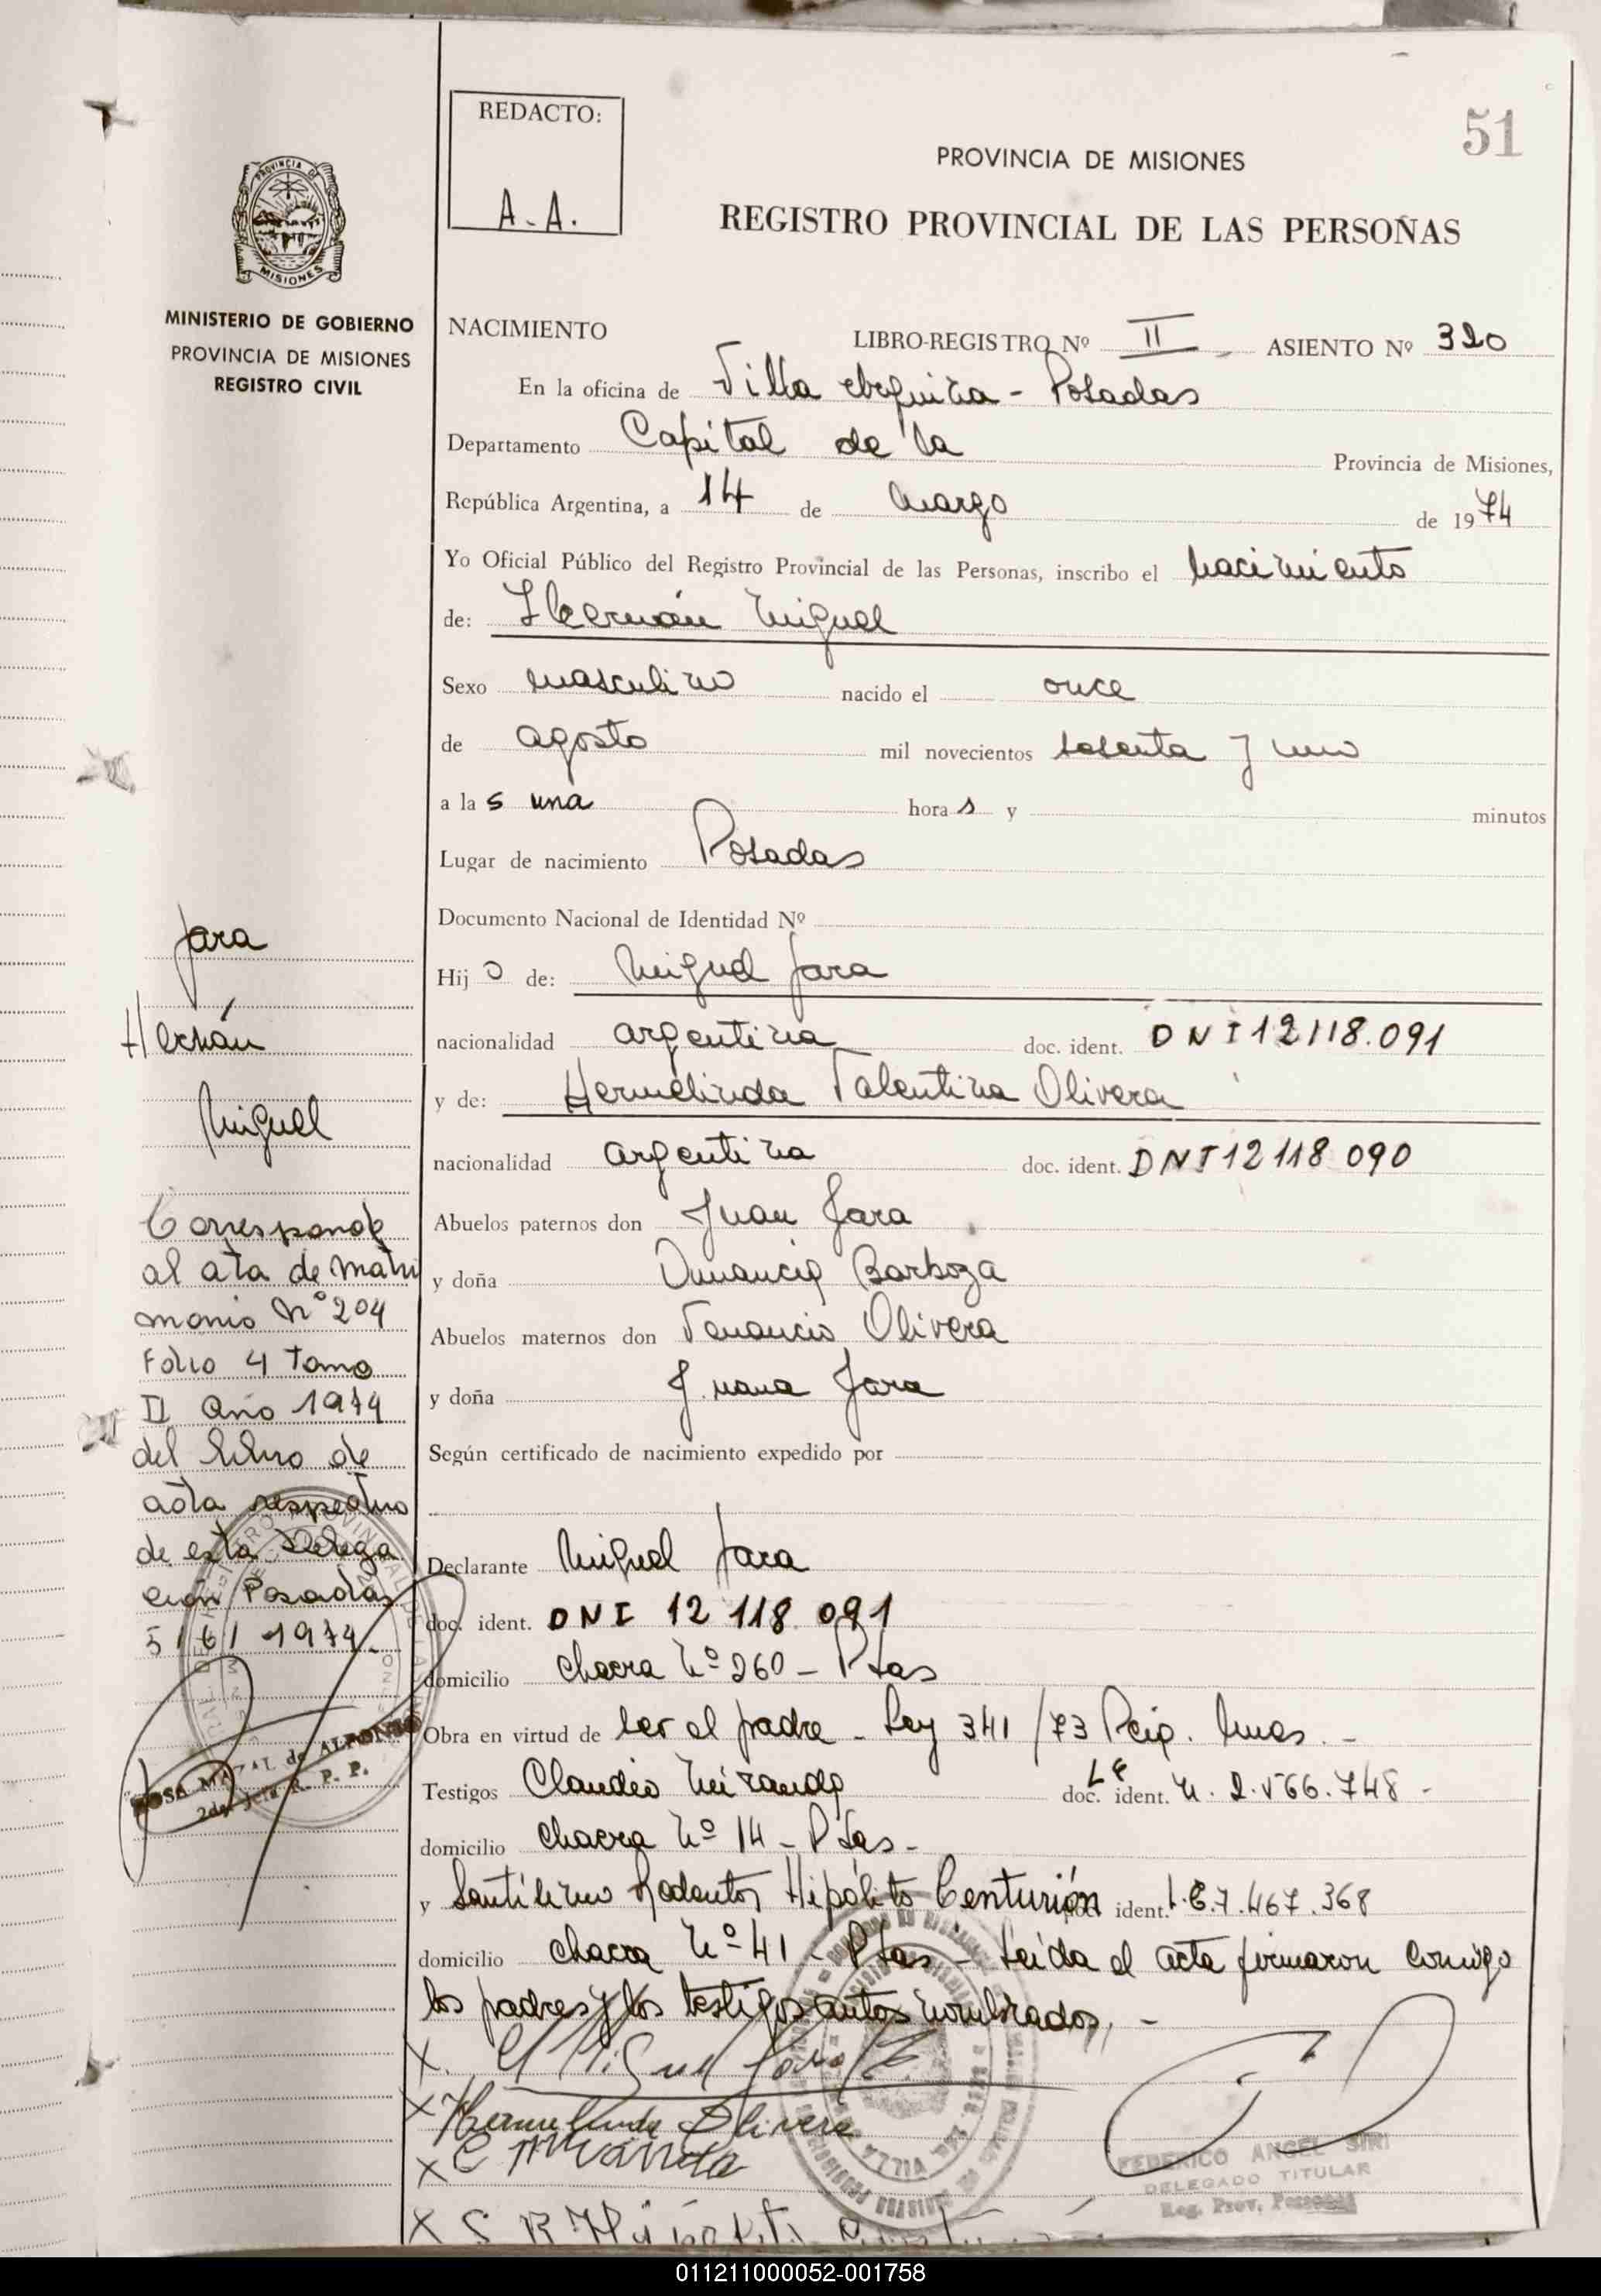 REDACTO:
A.A.
51
PROVINCIA DE MISIONES
REGISTRO PROVINCIAL DE LAS PERSOÑAS
PROVINCIA DE
MISIONES
MINISTERIO DE GOBIERNO
PROVINCIA DE MISIONES
REGISTRO CIVIL
NACIMIENTO LIBRO-REGISTRO Nº II ASIENTO Nº 320
En la oficina de Villa Urquiza - Posadas
Departamento Capital de la Provincia de Misiones,
República Argentina, a 14 de marzo de 1974
Yo Oficial Público del Registro Provincial de las Personas, inscribo el nacimiento
de: Hernán Miguel
Sexo masculino nacido el once
de agosto mil novecientos sesenta y uno
a la s una hora s y minutos
Lugar de nacimiento Posadas
Documento Nacional de Identidad Nº
Hij o de: Miguel Jara
nacionalidad argentina doc. ident. DNI 12118.091
y de: Hermelinda Valentina Olivera
nacionalidad argentina doc. ident. DNI 12 118 090
Abuelos paternos don Juan Jara
y doña Barboza
Abuelos maternos don Venancio Olivera
y doña Juana Jara
Según certificado de nacimiento expedido por
Declarante Miguel Jara
doc. ident. DNI 12 118 091
domicilio chacra Nº 260 - Pdas
Obra en virtud de ser el padre - Ley 341/73
Testigos Claudio Miranda doc. ident.
domicilio chacra Nº 14 - Pdas -
y Hipólito Centurión ident. 7.467.368
domicilio chacra Nº 41 - Pdas - Leída el acta firmaron conmigo
los padres y los testigos antes nombrados, -
Jara
Hernán
Miguel
Corresponde
al ata de matri
monio Nº 204
Folio 4 Tomo
II Año 1974
del libro de
acta respectivo
de esta Delega
ción Posadas
5/6/1974.
ROSA de ALFONSO
2da. Jefa R. P. P.
X. Miguel Jara
X Hermelinda Olivera
X C Miranda
X S R Hipolito
FEDERICO ANGEL SIRI
DELEGADO TITULAR
Reg. Prov. Personas
011211000052-001758